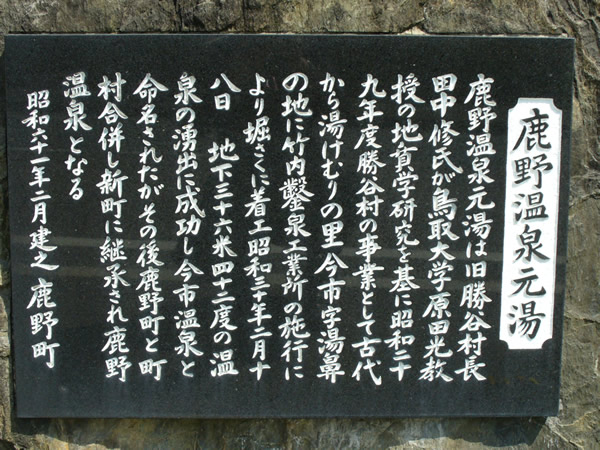 鹿野温泉元湯
鹿野温泉元湯は旧勝谷村長
田中修氏が鳥取大学原田光教
授の地質学研究を基に昭和二十
九年度勝谷村の事業として古代
から湯けむりの里今市字湯鼻
の地に竹内鑿泉工業所の施行に
より堀さくに着工昭和三十年二月十
八日 地下三十六米四十二度の温
泉の湧出に成功し今市温泉と
命名されたがその後鹿野町と町
村合併し新町に継承され鹿野
温泉となる
昭和六十一年二月建之 鹿野町